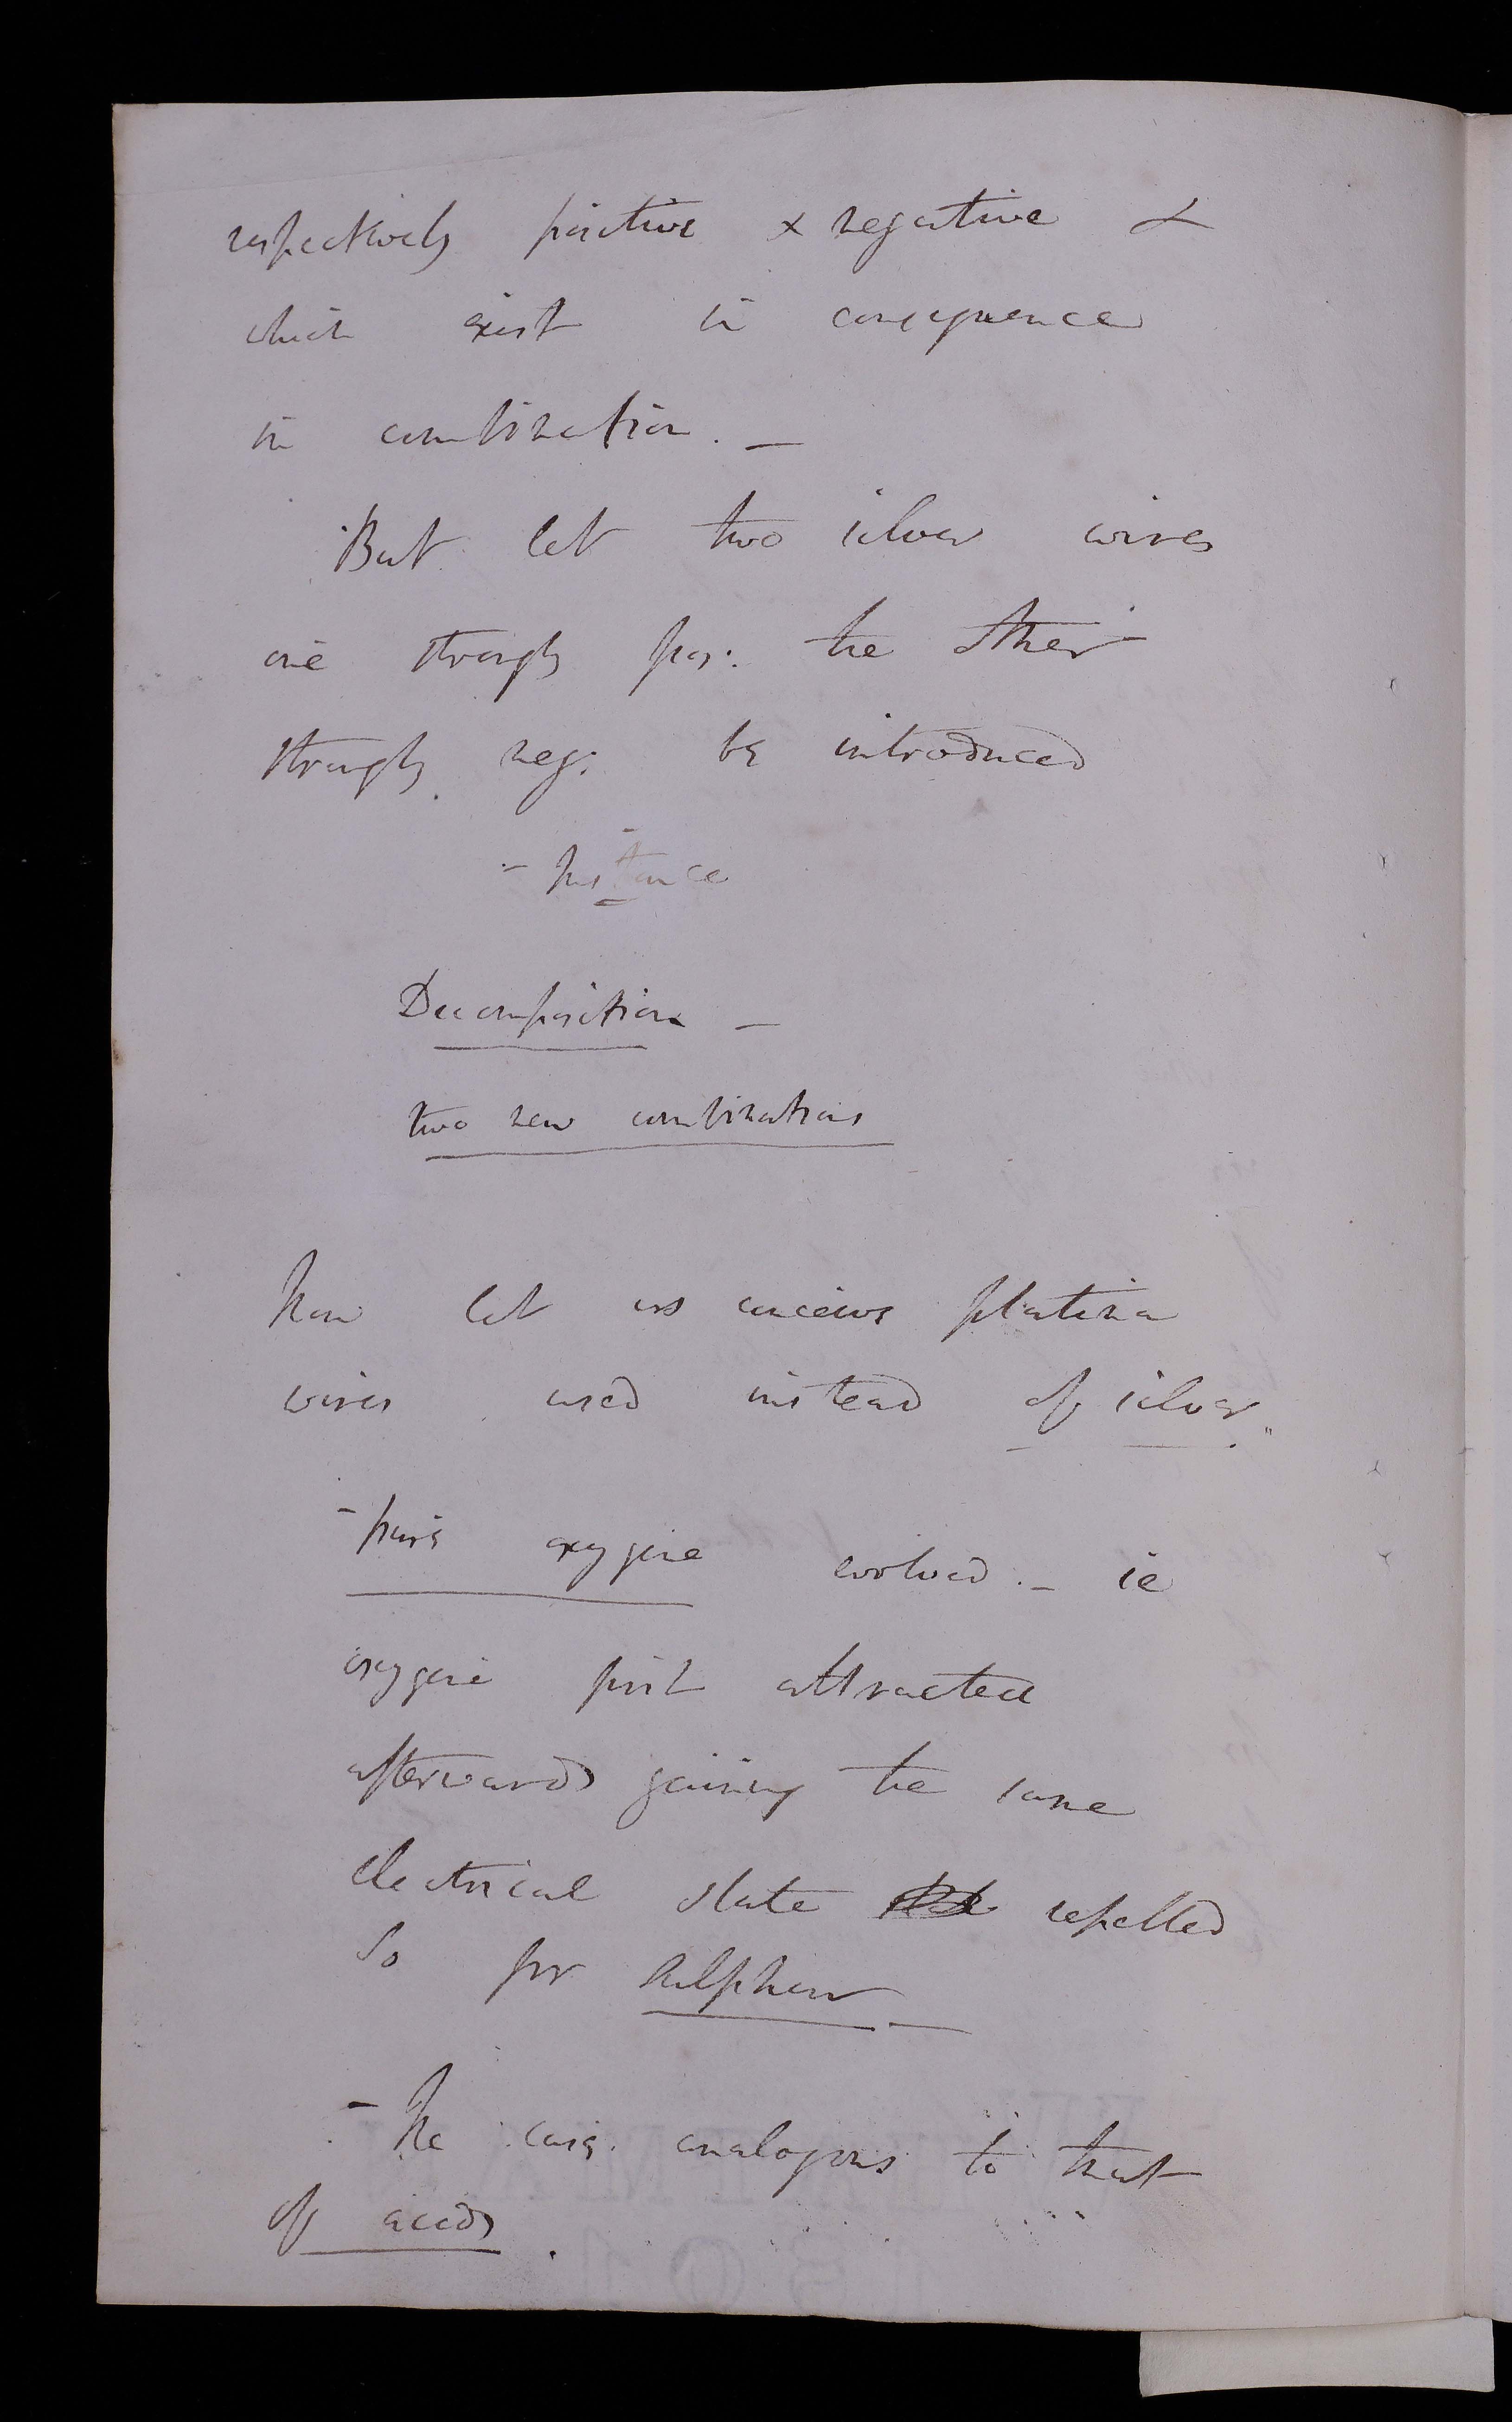 respectively positive & negative &
which exist in consequence
in combination. —
But let two silver wires
one strongly pos: the other
strongly neg: be introduced
- Instance
Decomposition —
two new combinations
Now let us conceive platina
wires used instead of silver."
- pure oxygene evolved. — ie
oxygene first attracted
afterwards gaining the same
electrical state repelled
So for sulphur —
- The case analogous to that
of acids.